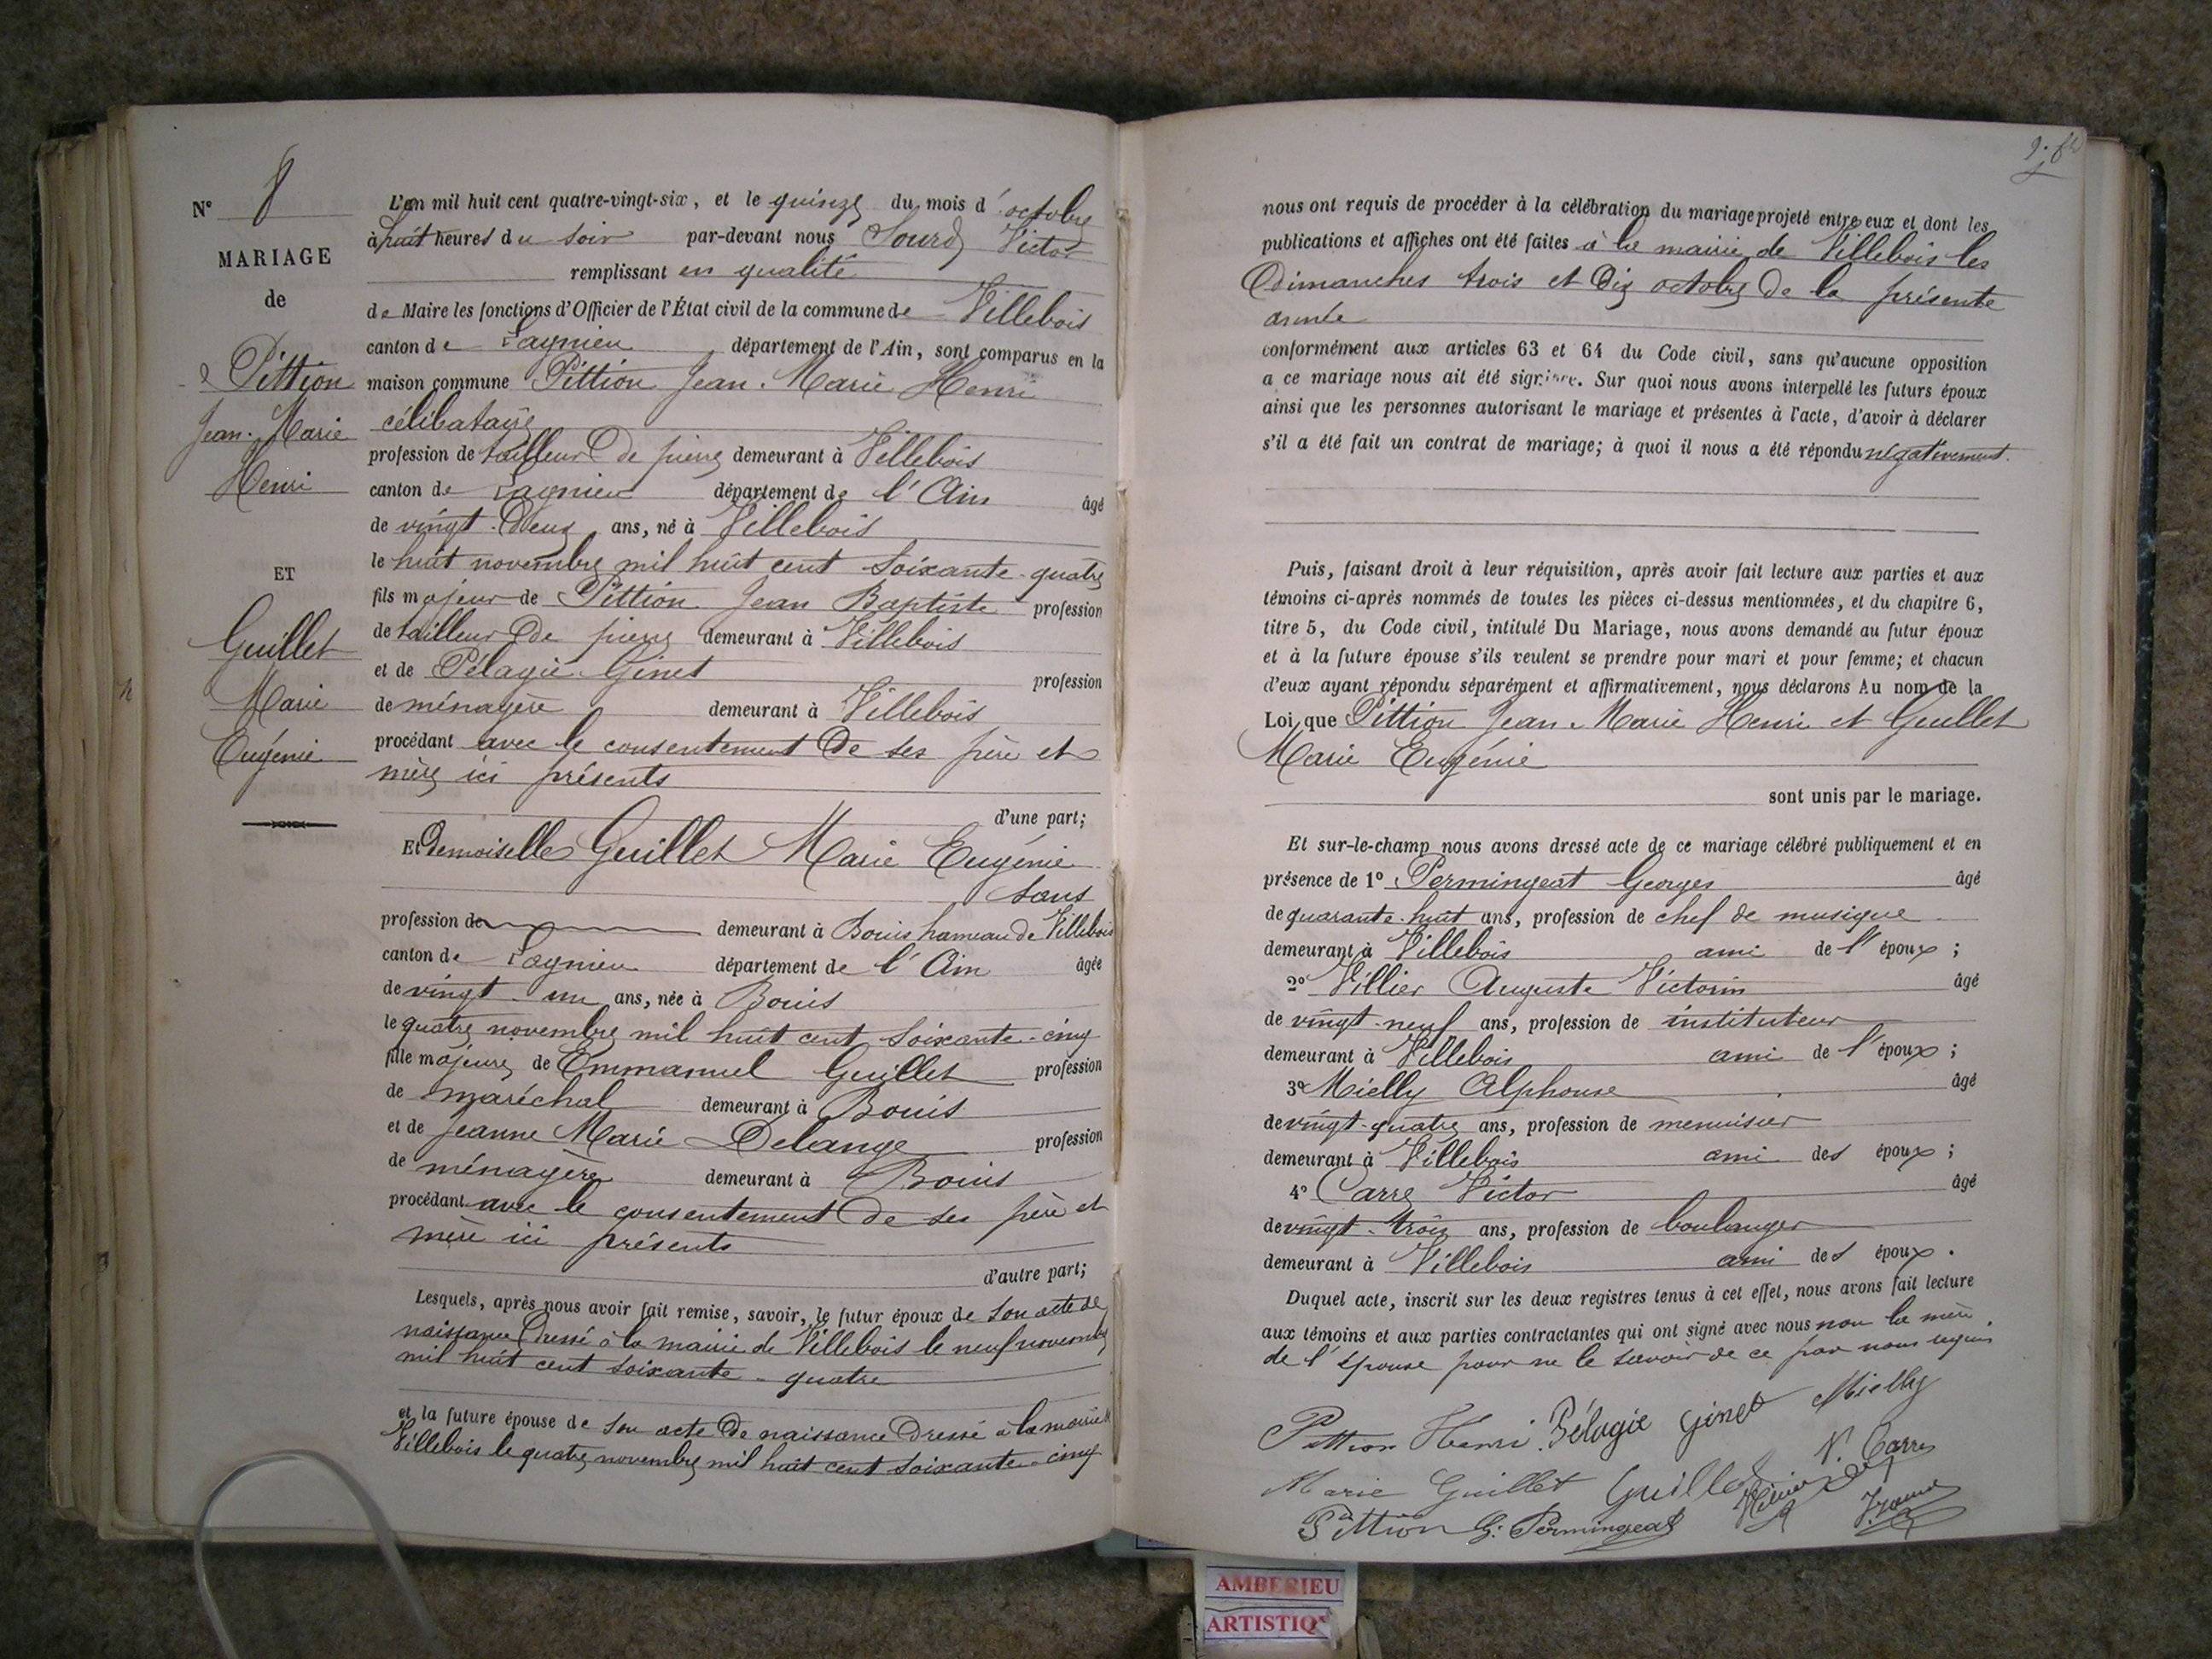 N° 8
MARIAGE
de
Pittion
Jean-Marie
Henri
ET
Guillet
Marie
Eugénie
L'an mil huit cent quatre-vingt-six, et le quinze du mois d'octobre
à huit heures du soir par-devant nous Sourd Victor
remplissant en qualité
de Maire les fonctions d'Officier de l'État civil de la commune de Villebois
canton de Lagnieu département de l'Ain, sont comparus en la
maison commune Pittion Jean-Marie Henri
célibataire
profession de tailleur de pierre demeurant à Villebois
canton de Lagnieu département de l'Ain âgé
de vingt-deux ans, né à Villebois
le huit novembre mil huit cent soixante-quatre
fils majeur de Pittion Jean Baptiste profession
de tailleur de pierre demeurant à Villebois
et de Pélagie Ginet profession
de ménagère demeurant à Villebois
procédant avec le consentement de ses père et
mère ici présents
d'une part;
Et Demoiselle Guillet Marie Eugénie
sans
profession de demeurant à Bouis hameau de Villebois
canton de Lagnieu département de l'Ain âgée
de vingt-un ans, née à Bouis
le quatre novembre mil huit cent soixante-cinq
fille majeure de Emmanuel Guillet profession
de maréchal demeurant à Bouis
et de Jeanne Marie Delange profession
de ménagère demeurant à Bouis
procédant avec le consentement de ses père et
mère ici présents
d'autre part;
Lesquels, après nous avoir fait remise, savoir, le futur époux de son acte de
naissance dressé à la mairie de Villebois le neuf novembre
mil huit cent soixante-quatre
et la future épouse de son acte de naissance dressé à la mairie de
Villebois le quatre novembre mil huit cent soixante-cinq
nous ont requis de procéder à la célébration du mariage projeté entre eux et dont les
publications et affiches ont été faites à la mairie de Villebois les
Dimanches trois et dix octobre de la présente
année
conformément aux articles 63 et 64 du Code civil, sans qu'aucune opposition
a ce mariage nous ait été signifiée. Sur quoi nous avons interpellé les futurs époux
ainsi que les personnes autorisant le mariage et présentes à l'acte, d'avoir à déclarer
s'il a été fait un contrat de mariage; à quoi il nous a été répondu négativement.
Puis, faisant droit à leur réquisition, après avoir fait lecture aux parties et aux
témoins ci-après nommés de toutes les pièces ci-dessus mentionnées, et du chapitre 6,
titre 5, du Code civil, intitulé Du Mariage, nous avons demandé au futur époux
et à la future épouse s'ils veulent se prendre pour mari et pour femme; et chacun
d'eux ayant répondu séparément et affirmativement, nous déclarons Au nom de la
Loi, que Pittion Jean-Marie Henri et Guillet
Marie Eugénie
sont unis par le mariage.
Et sur-le-champ nous avons dressé acte de ce mariage célébré publiquement et en
présence de 1° Permingeat Georges âgé
de quarante-huit ans, profession de chef de musique
demeurant à Villebois ami de l'époux;
2° Villier Auguste Victorin âgé
de vingt-neuf ans, profession de instituteur
demeurant à Villebois ami de l'époux;
3° Mielly Alphonse âgé
de vingt-quatre ans, profession de menuisier
demeurant à Villebois ami des époux;
4° Carre Victor âgé
de vingt-trois ans, profession de boulanger
demeurant à Villebois ami des époux.
Duquel acte, inscrit sur les deux registres tenus à cet effet, nous avons fait lecture
aux témoins et aux parties contractantes qui ont signé avec nous non la mère
de l'épouse pour ne le savoir de ce par nous requis
Pittion Henri Pélagie Ginet Mielly
V. Carre
Marie Guillet Guillet
Pittion G. Permingeat
AMBERIEU
ARTISTIQ